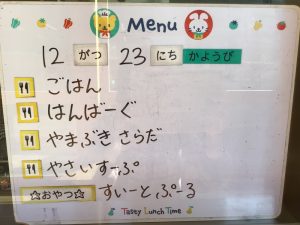 Menu
12 がつ 23 にち かようび
ごはん
はんばーぐ
やまぶき さらだ
やさいすーぷ
☆おやつ☆ すいーとぷーる
Tasty Lunch Time